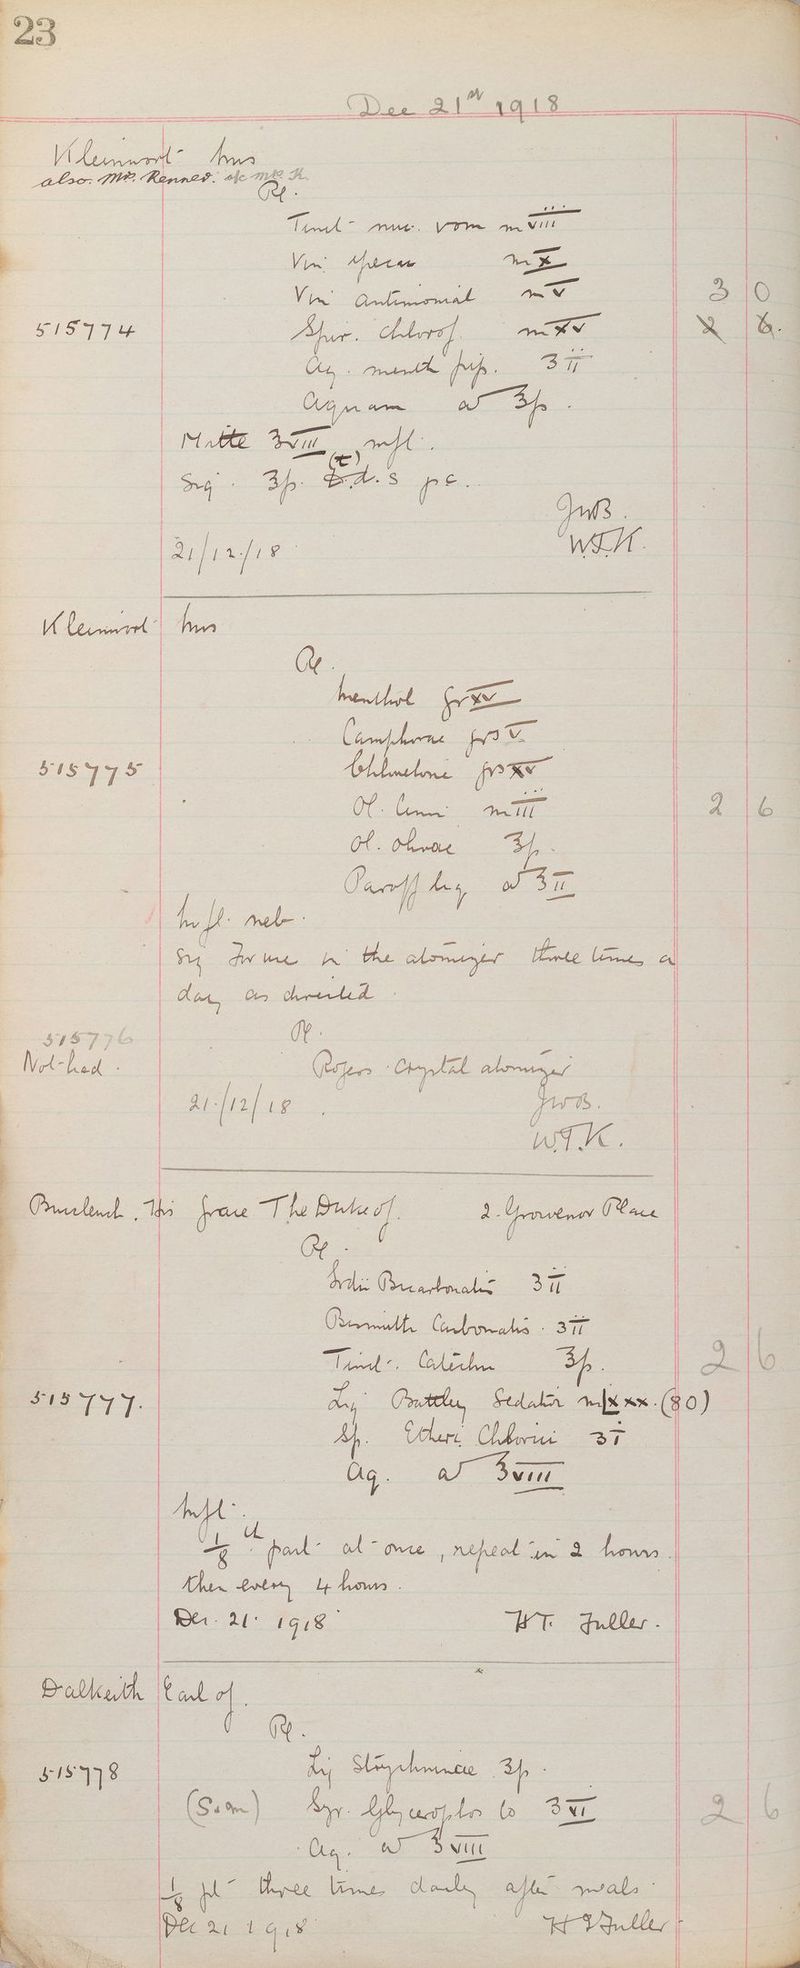 23
Dec 21st 1918
Kleinwort Mrs
also. Mr. Renned. s/c Mr. K.
Rx.
Tinct nuc. vom m viii
Vin ipecac m x
Vin antimonial m v
3 0
515774 Spir. chlorof. m xv 2 6.
Aq. menth pip. ʒ ii
Aquam ad ℥ss.
Mitte ℥viii mft.
(t)
Sig. ℥ss. b.d.s pc.
JWB.
21/12/18 W.T.K.
Kleinwort Mrs
Rx.
Menthol gr xv
Camphorae grs v
515775 Chloretone grs xv
Ol. Cinni m iii 2 6
Ol. olivae ℥ss.
Paroff liq ad ℥ii
mft. neb.
Sig For use in the atomizer three times a
day as directed.
515776 Rx.
Not had. Rogers crystal atomizer
21/12/18. JWB.
W.T.K.
Buccleuch. His Grace The Duke of. 2. Grosvenor Place
Rx.
Sodii Bicarbonatis ʒ ii
Bismuth Carbonatis. ʒ ii
Tinct. Catechu ℥ss. 2 6
515777. Liq Battley Sedativ m lxxx. (80)
Sp. Etheri Chlorici ʒ i
Aq. ad ℥viii
Mft.
1/8th part at once, repeat in 2 hours
then every 4 hours.
Dec. 21. 1918 HT. Fuller.
Dalkeith Earl of.
Rx.
515778 Liq Strychninae ʒss.
Syr. Glycerophos Co ʒ vi 2 6
Aq. ad ℥viii
1/8 pt three times daily after meals
Dec 21 1918 H T Fuller